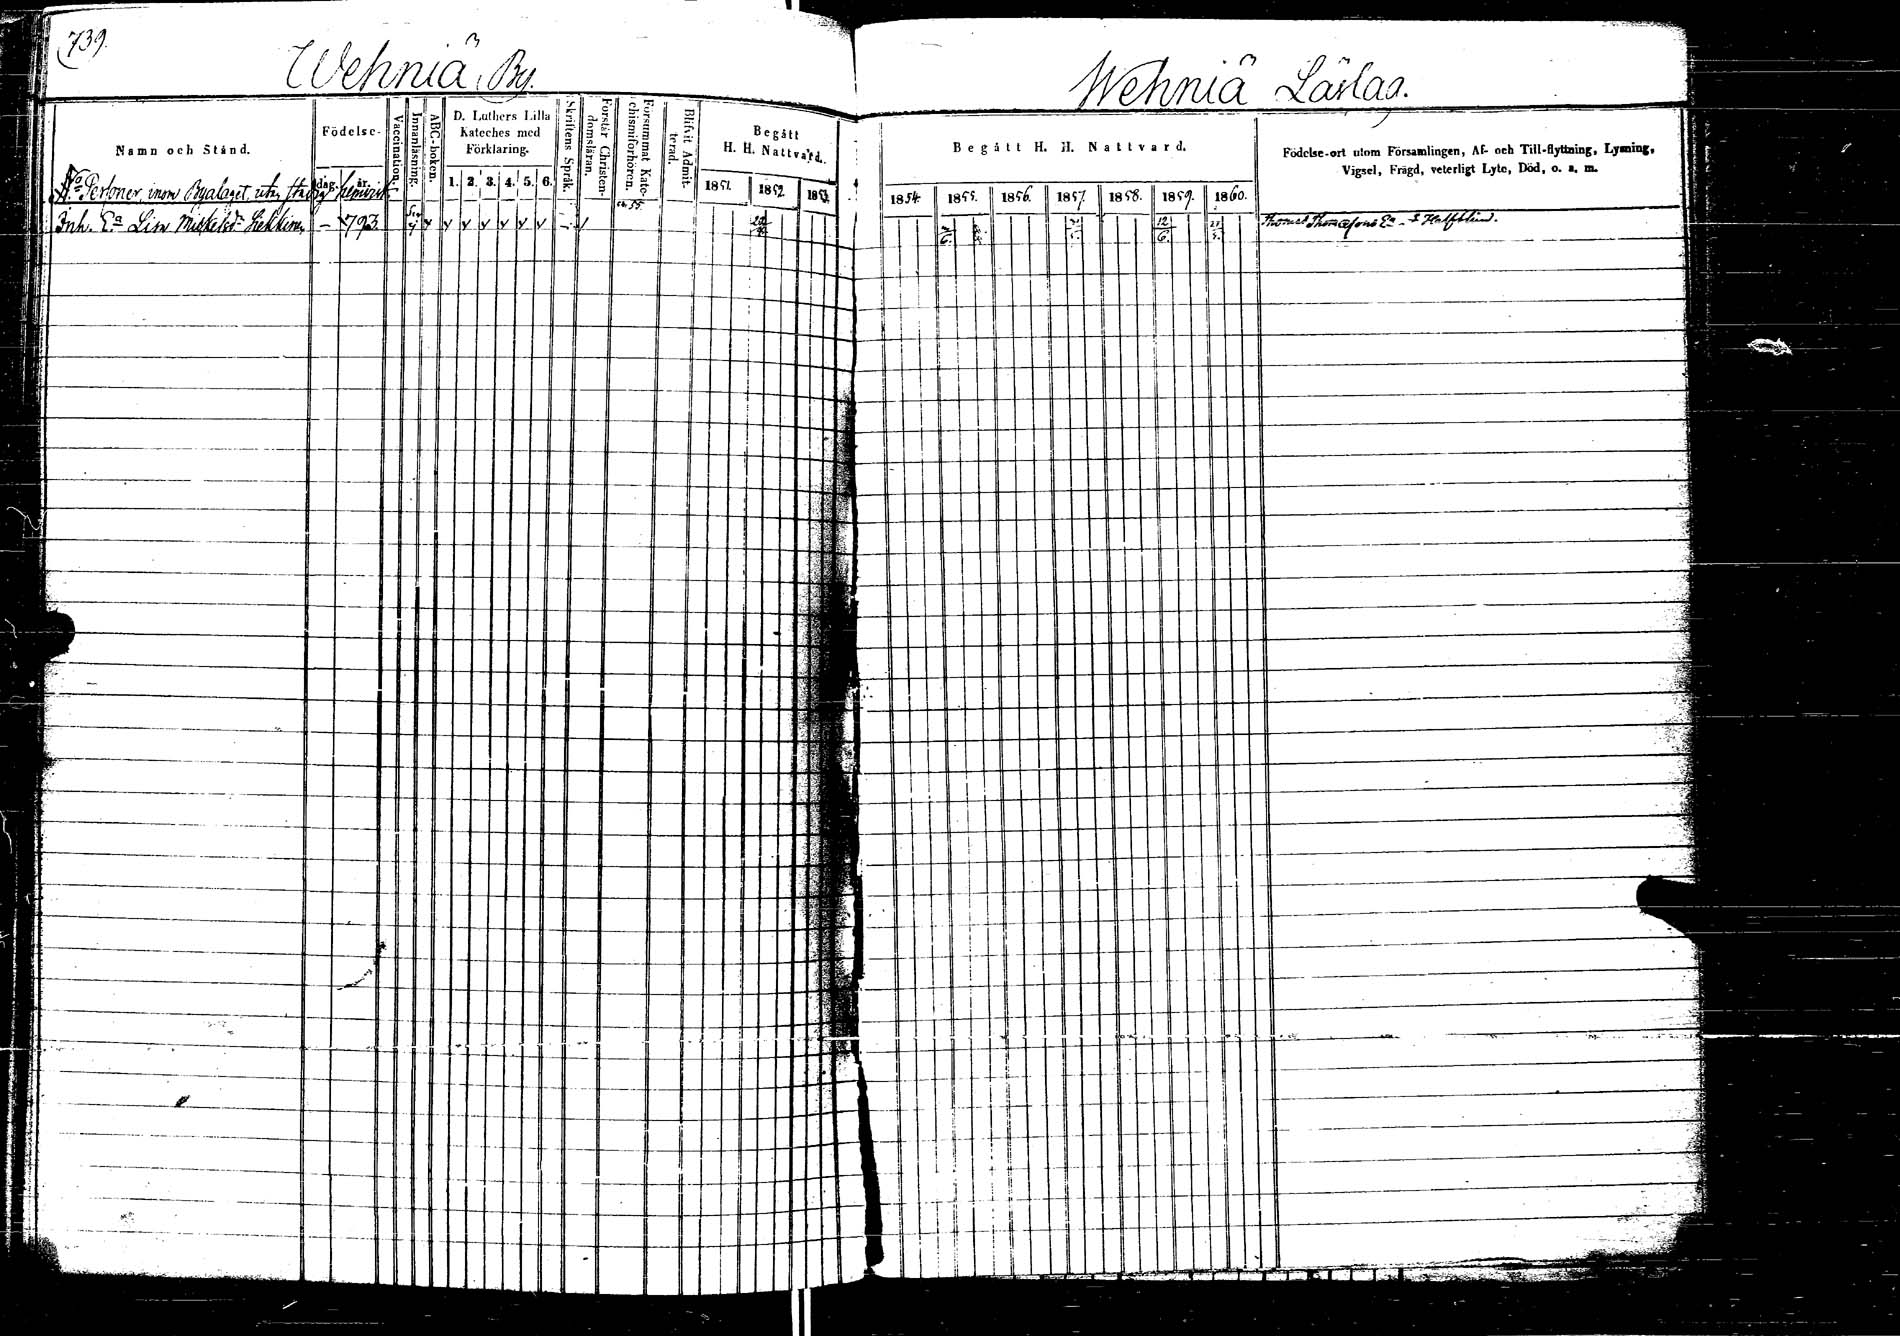 739.
Wehniä By.
Wehniä Läslag.
Namn och Stånd.
Födelse-
dag. år.
Vaccination.
Innanläsning.
ABC-boken.
D. Luthers Lilla
Kateches med
Förklaring.
1. 2. 3. 4. 5. 6.
Skriftens Språk.
Förstår Christen-
domsläran.
Försummat Kate-
chismiförhören.
Blifvit Admit-
terad.
Begått
H. H. Nattvard.
1851. 1852. 1853.
Begått H. H. Nattvard.
1854. 1855. 1856. 1857. 1858. 1859. 1860.
Födelse-ort utom Församlingen, Af- och Till-flyttning, Lysning,
Vigsel, Frägd, veterligt Lyte, Död, o. s. m.
Personer, inom Byalaget utan stadig hemvist
Inh. Ea Lisa - 793. 12/6.
Thomas Thomassons Ea - Halfblind.